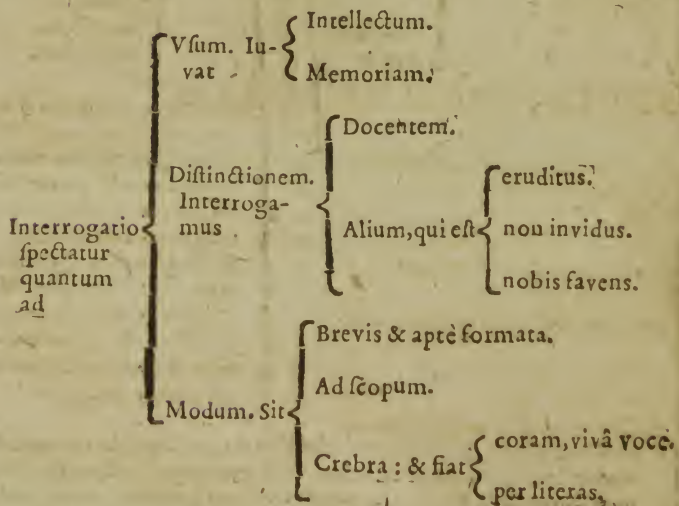 Interrogatio
ſpectatur
quantum
ad
Vſum. Iu-
vat
Intellectum.
Memoriam.
Diſtinctionem.
Interroga-
mus
Docentem.
Alium, qui eſt
eruditus.
non invidus.
nobis favens.
Modum. Sit
Brevis & aptè formata.
Ad ſcopum.
Crebra : & fiat
coram, vivâ voce.
per literas.